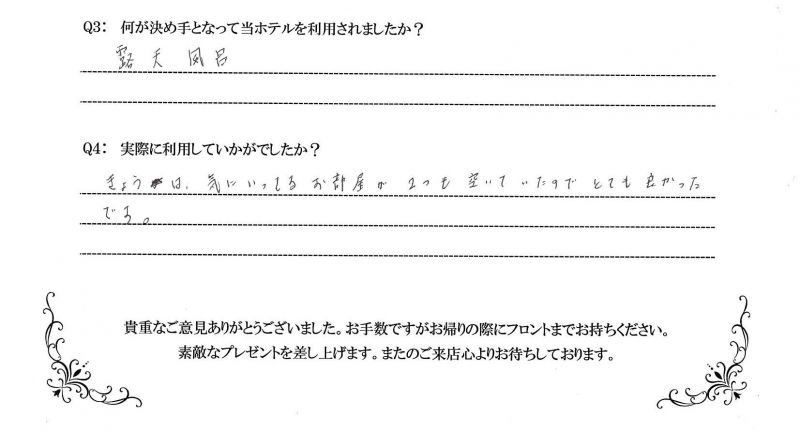 Q3: 何が決め手となって当ホテルを利用されましたか?
露天風呂
Q4: 実際に利用していかがでしたか?
きょうは、気にいってるお部屋が2つも空いていたのでとても良かった
です。
貴重なご意見ありがとうございました。お手数ですがお帰りの際にフロントまでお持ちください。
素敵なプレゼントを差し上げます。またのご来店心よりお待ちしております。